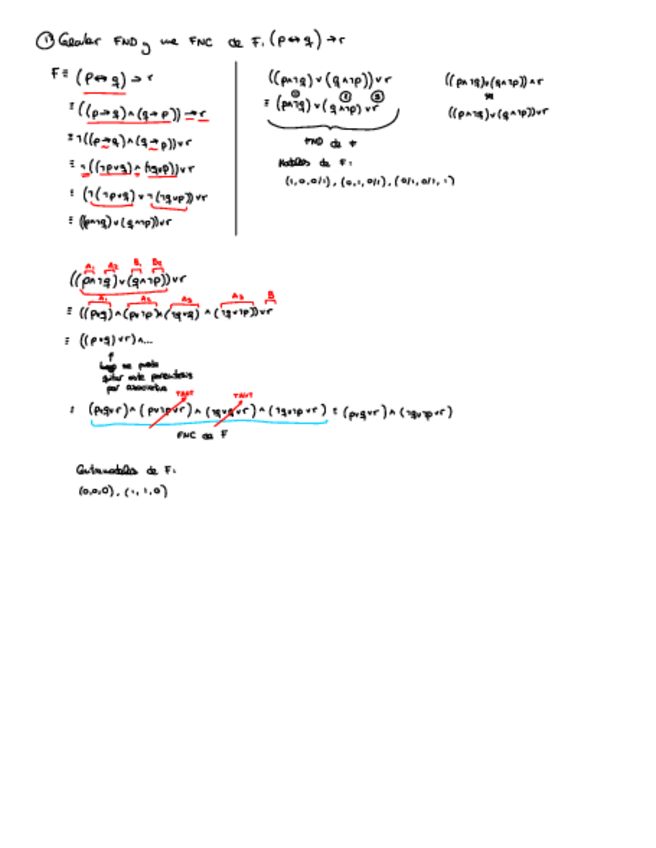 ① Calcular FND y una FNC de F: (p↔q)→r
F≡ (p↔q)→r
≡((p→q)∧(q→p))→r
≡¬((p→q)∧(q→p))∨r
≡¬((¬p∨q)∧(¬q∨p))∨r
≡(¬(¬p∨q)∨¬(¬q∨p))∨r
≡((p∧¬q)∨(q∧¬p))∨r
((p∧¬q)∨(q∧¬p))∨r
① ② ③
≡(p∧¬q)∨(q∧¬p)∨r
FND de F
Modelos de F:
(1,0,0/1), (0,1,0/1), (0/1,0/1,1)
((p∧¬q)∨(q∧¬p))∧r
((p∧¬q)∨(q∧¬p))∨r
A₁ A₂ B₁ B₂
((p∧¬q)∨(q∧¬p))∨r
A₁ A₂ A₃ B
≡((p∨q)∧(p∨¬p)∧(¬q∨q)∧(¬q∨¬p))∨r
≡((p∨q)∨r)∧...
↑
luego se puede
quitar este paréntesis
por asociativa
TAUT TAUT
≡(p∨q∨r)∧(p∨¬p∨r)∧(¬q∨q∨r)∧(¬q∨¬p∨r)≡(p∨q∨r)∧(¬q∨¬p∨r)
FNC de F
Contramodelos de F:
(0,0,0), (1,1,0)